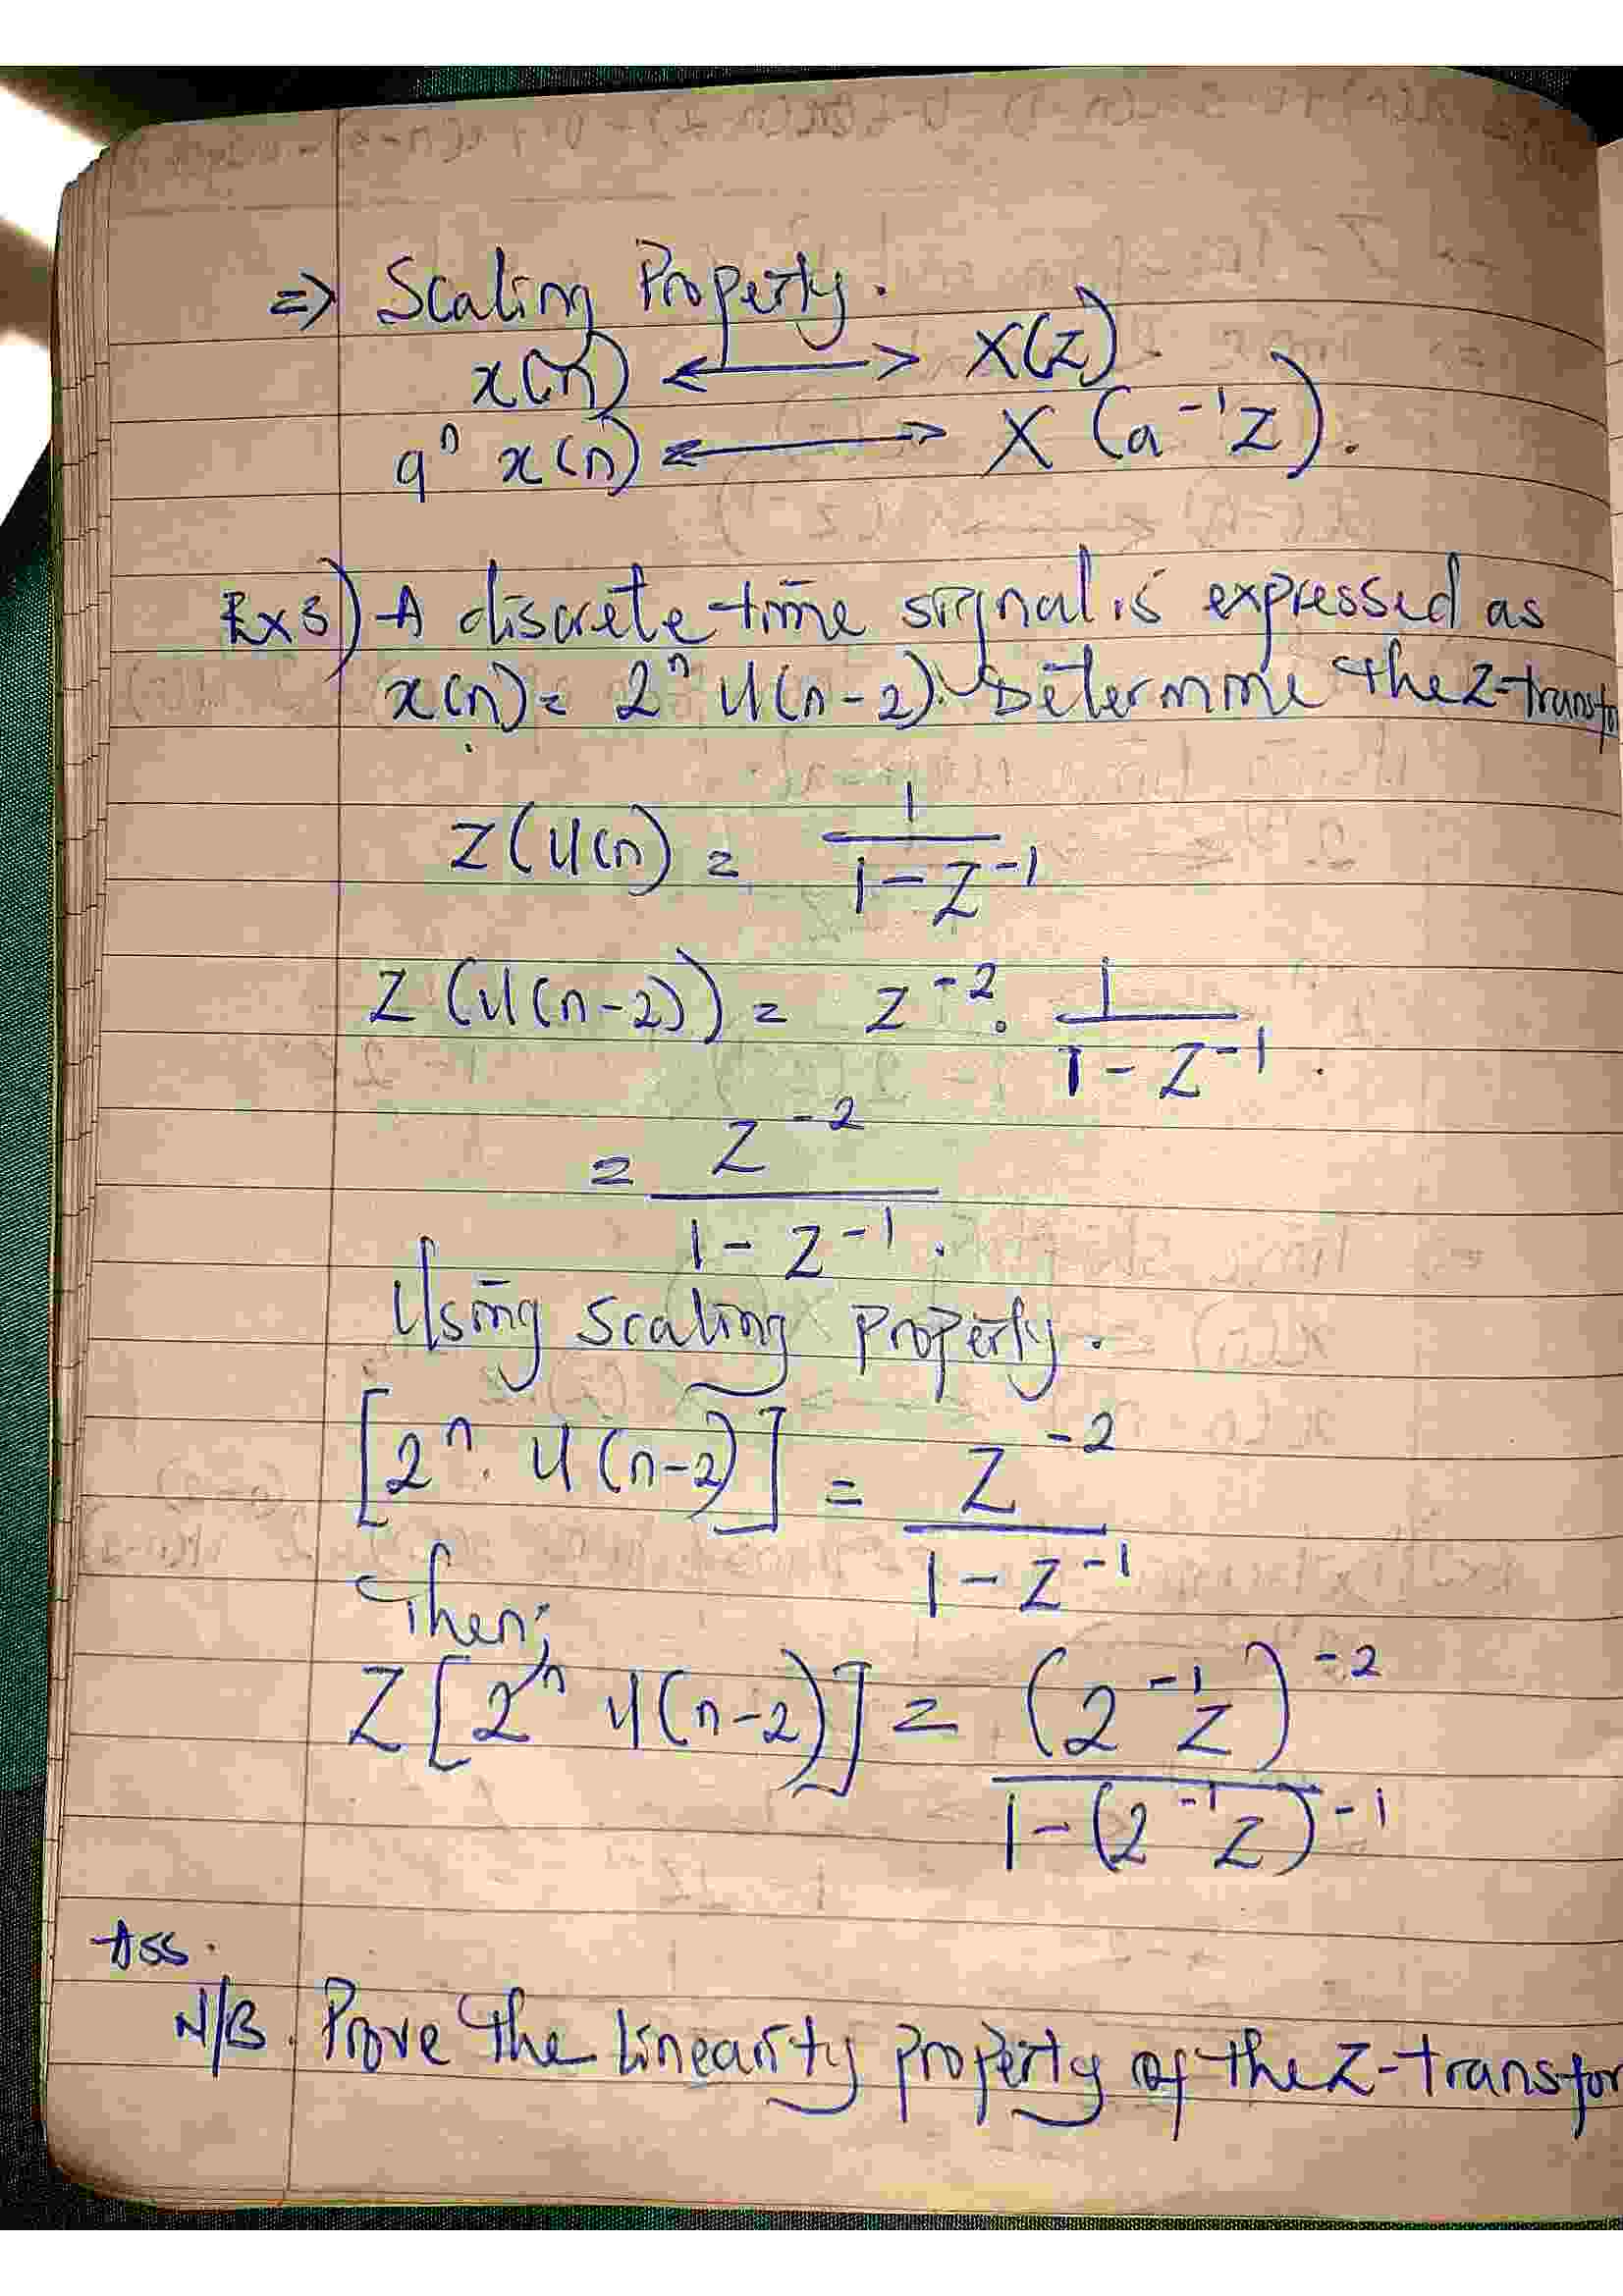 => Scaling Property.
x(n) <----> X(z)
a^n x(n) <----> X(a^-1 z).
Ex 3) A discrete time signal is expressed as
x(n) = 2^n U(n-2). Determine the Z-transfo
Z(U(n) = 1 / (1 - Z^-1)
Z(U(n-2)) = Z^-2 . 1 / (1 - Z^-1).
= Z^-2 / (1 - Z^-1).
Using scaling property.
[2^n . U(n-2)] = Z^-2 / (1 - Z^-1)
Then;
Z[2^n U(n-2)] = (2^-1 Z)^-2 / (1 - (2^-1 Z)^-1)
Ass.
N/B. Prove the linearity property of the Z-transfor